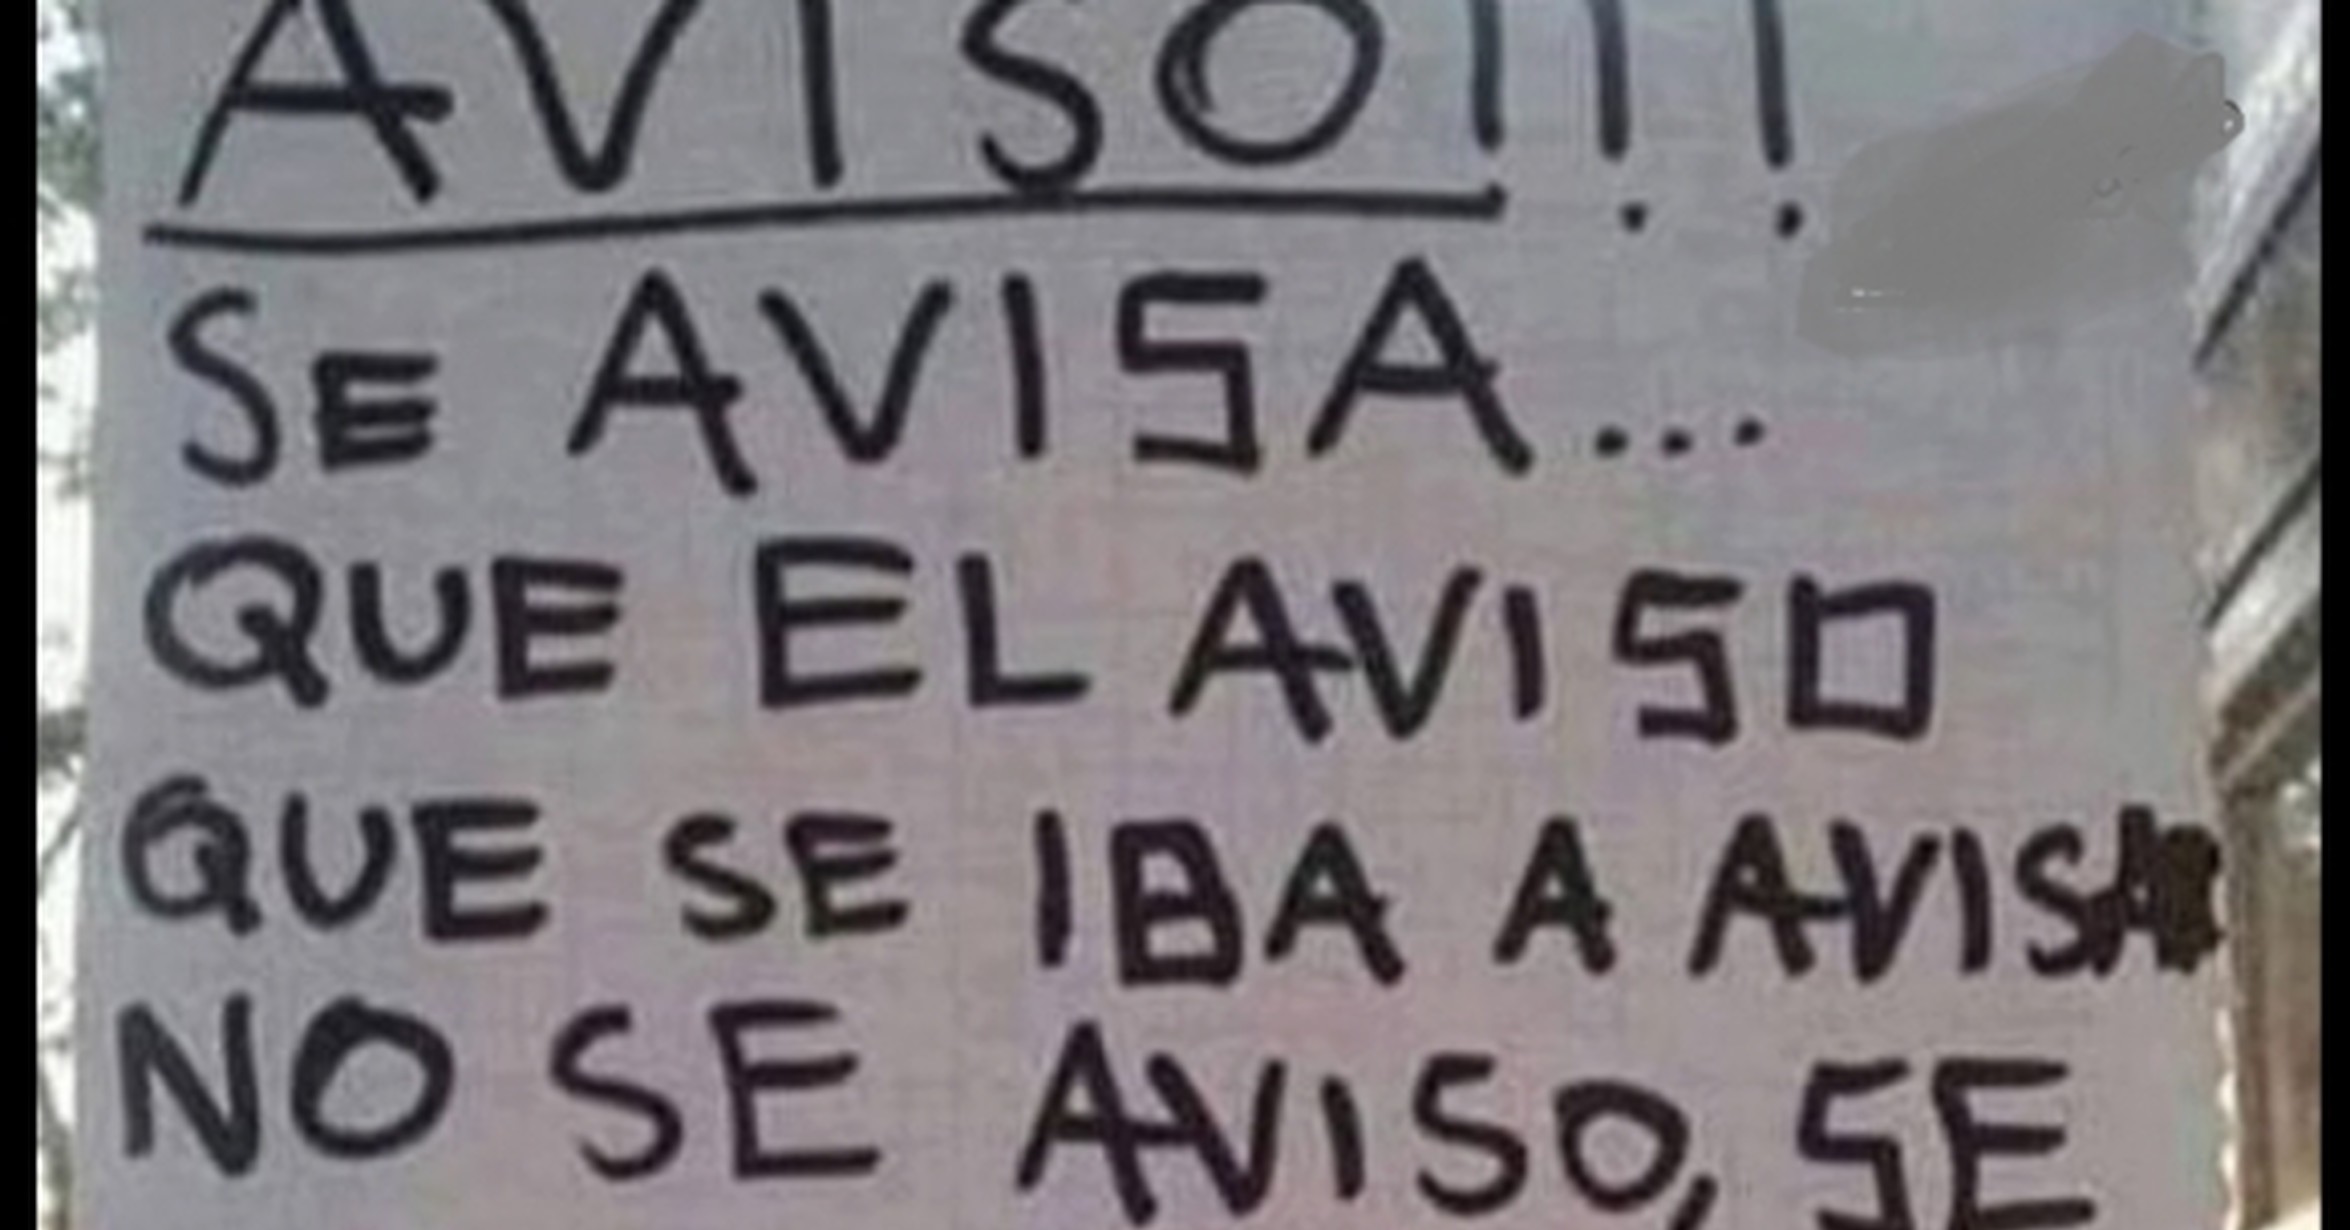 AVISO!!!
SE AVISA...
QUE EL AVISO
QUE SE IBA A AVISAR
NO SE AVISO, SE